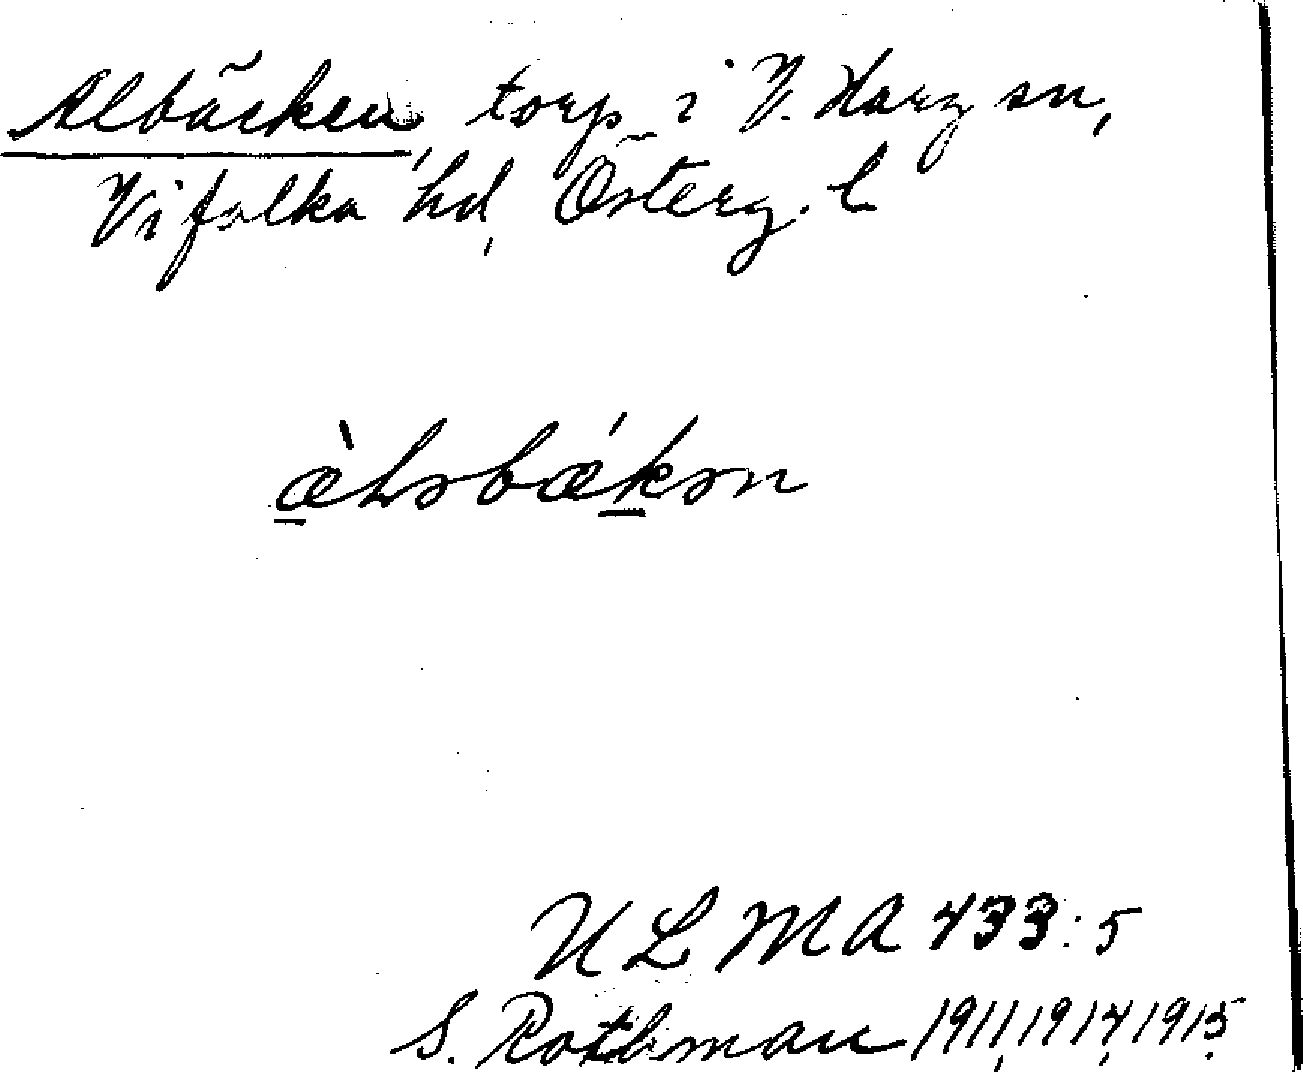 Albäcken, torp i V. Harg sn,
Vifolka hd, Österg. l
æ̀lsbǽkən
ULMA 433:5
S. Rothman 1911, 1914, 1915.